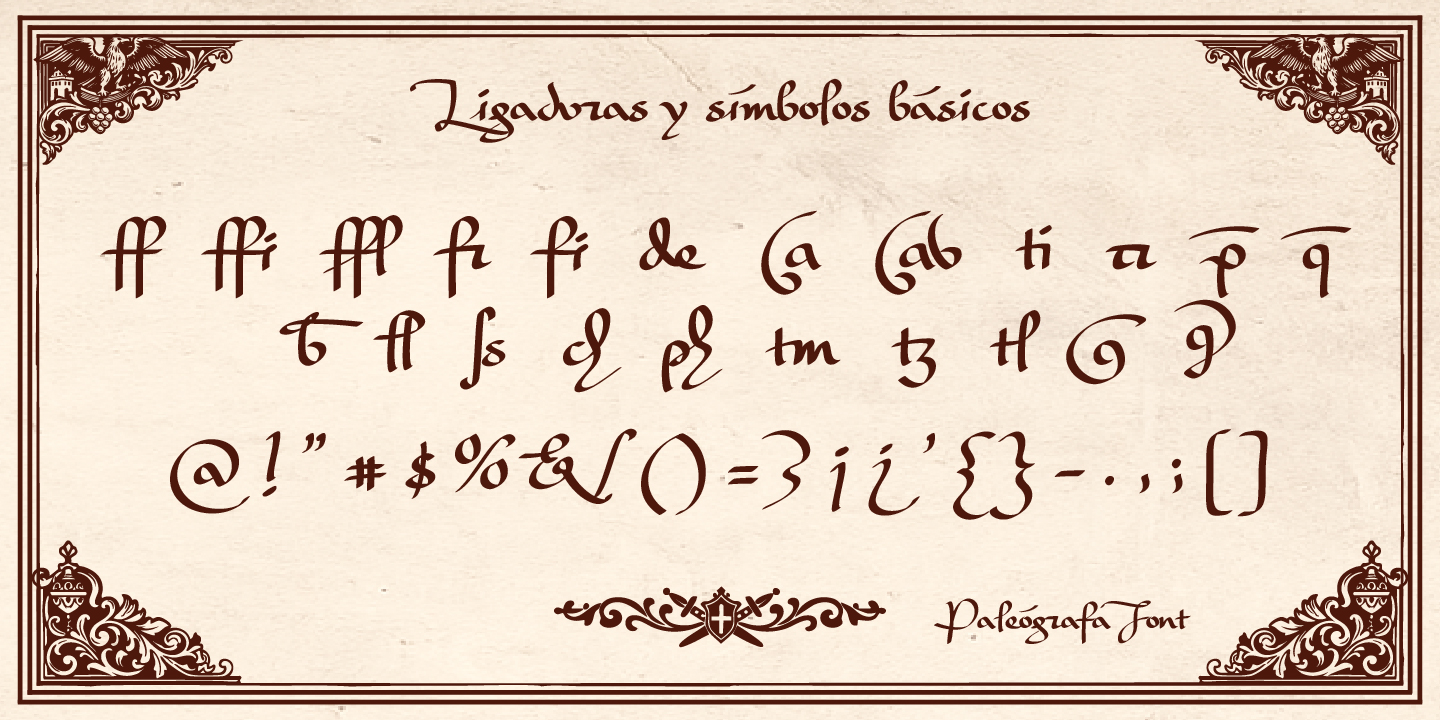 Ligaduras y símbolos básicos
ff ffi fffl fr fi de ca cab ti rr p̄ q̄
to fl ſs ch ph tm tz tl
@ ! " # $ % & / ( ) = ? ¡ ¿ ' { } - . , ; [ ]
Paleógrafa Font